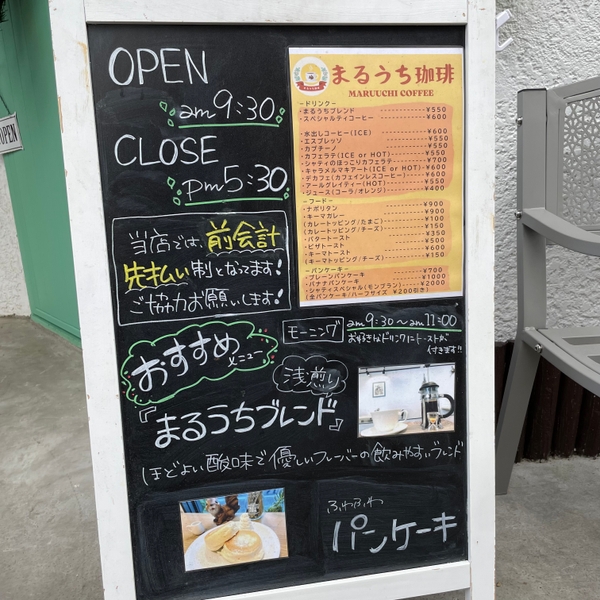 OPEN
OPEN
am 9:30
CLOSE
pm 5:30
当店では、前会計
先払い制となってます!
ご協力お願いします!
まるうち珈琲
MARUUCHI COFFEE
-ドリンク-
・まるうちブレンド ¥550
・スペシャルティコーヒー ¥600
・水出しコーヒー(ICE) ¥600
・エスプレッソ ¥550
・カプチーノ ¥550
・カフェラテ(ICE or HOT) ¥550
・シャティのほっこりカフェラテ ¥700
・キャラメルマキアート(ICE or HOT) ¥600
・デカフェ(カフェインレスコーヒー) ¥600
・アールグレイティー(HOT) ¥550
・ジュース(コーラ/オレンジ) ¥400
-フード-
・ナポリタン ¥900
・キーマカレー ¥900
(カレートッピング/たまご) ¥100
(カレートッピング/チーズ) ¥150
・バタートースト ¥350
・ピザトースト ¥500
・キーマトースト ¥600
(キーマトッピング/チーズ) ¥150
-パンケーキ-
・プレーンパンケーキ ¥700
・バナナパンケーキ ¥1000
・シャティスペシャル(モンブラン) ¥2000
(全パンケーキ/ハーフサイズ ¥200引き)
モーニング am 9:30〜am 11:00
お好きなドリンクにトーストが
付きます!!
おすすめ
メニュー
浅煎り
『まるうちブレンド』
ほどよい酸味で優しいフレーバーの飲みやすいブレンド
ふわふわ
パンケーキ